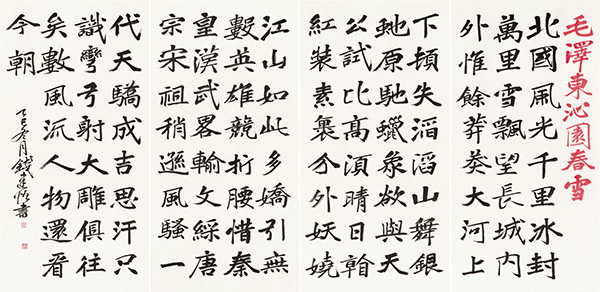 毛澤東沁園春雪
北國風光千里冰封
萬里雪飄望長城内
外惟餘莽莽大河上
下頓失滔滔山舞銀
虵原馳蠟象欲與天
公試比高須晴日看
紅裝素裹分外妖嬈
江山如此多嬌引無
數英雄競折腰惜秦
皇漢武畧輸文綵唐
宗宋祖稍遜風騷一
代天驕成吉思汗只
識彎弓射大雕俱往
矣數風流人物還看
今朝
冬月錢書